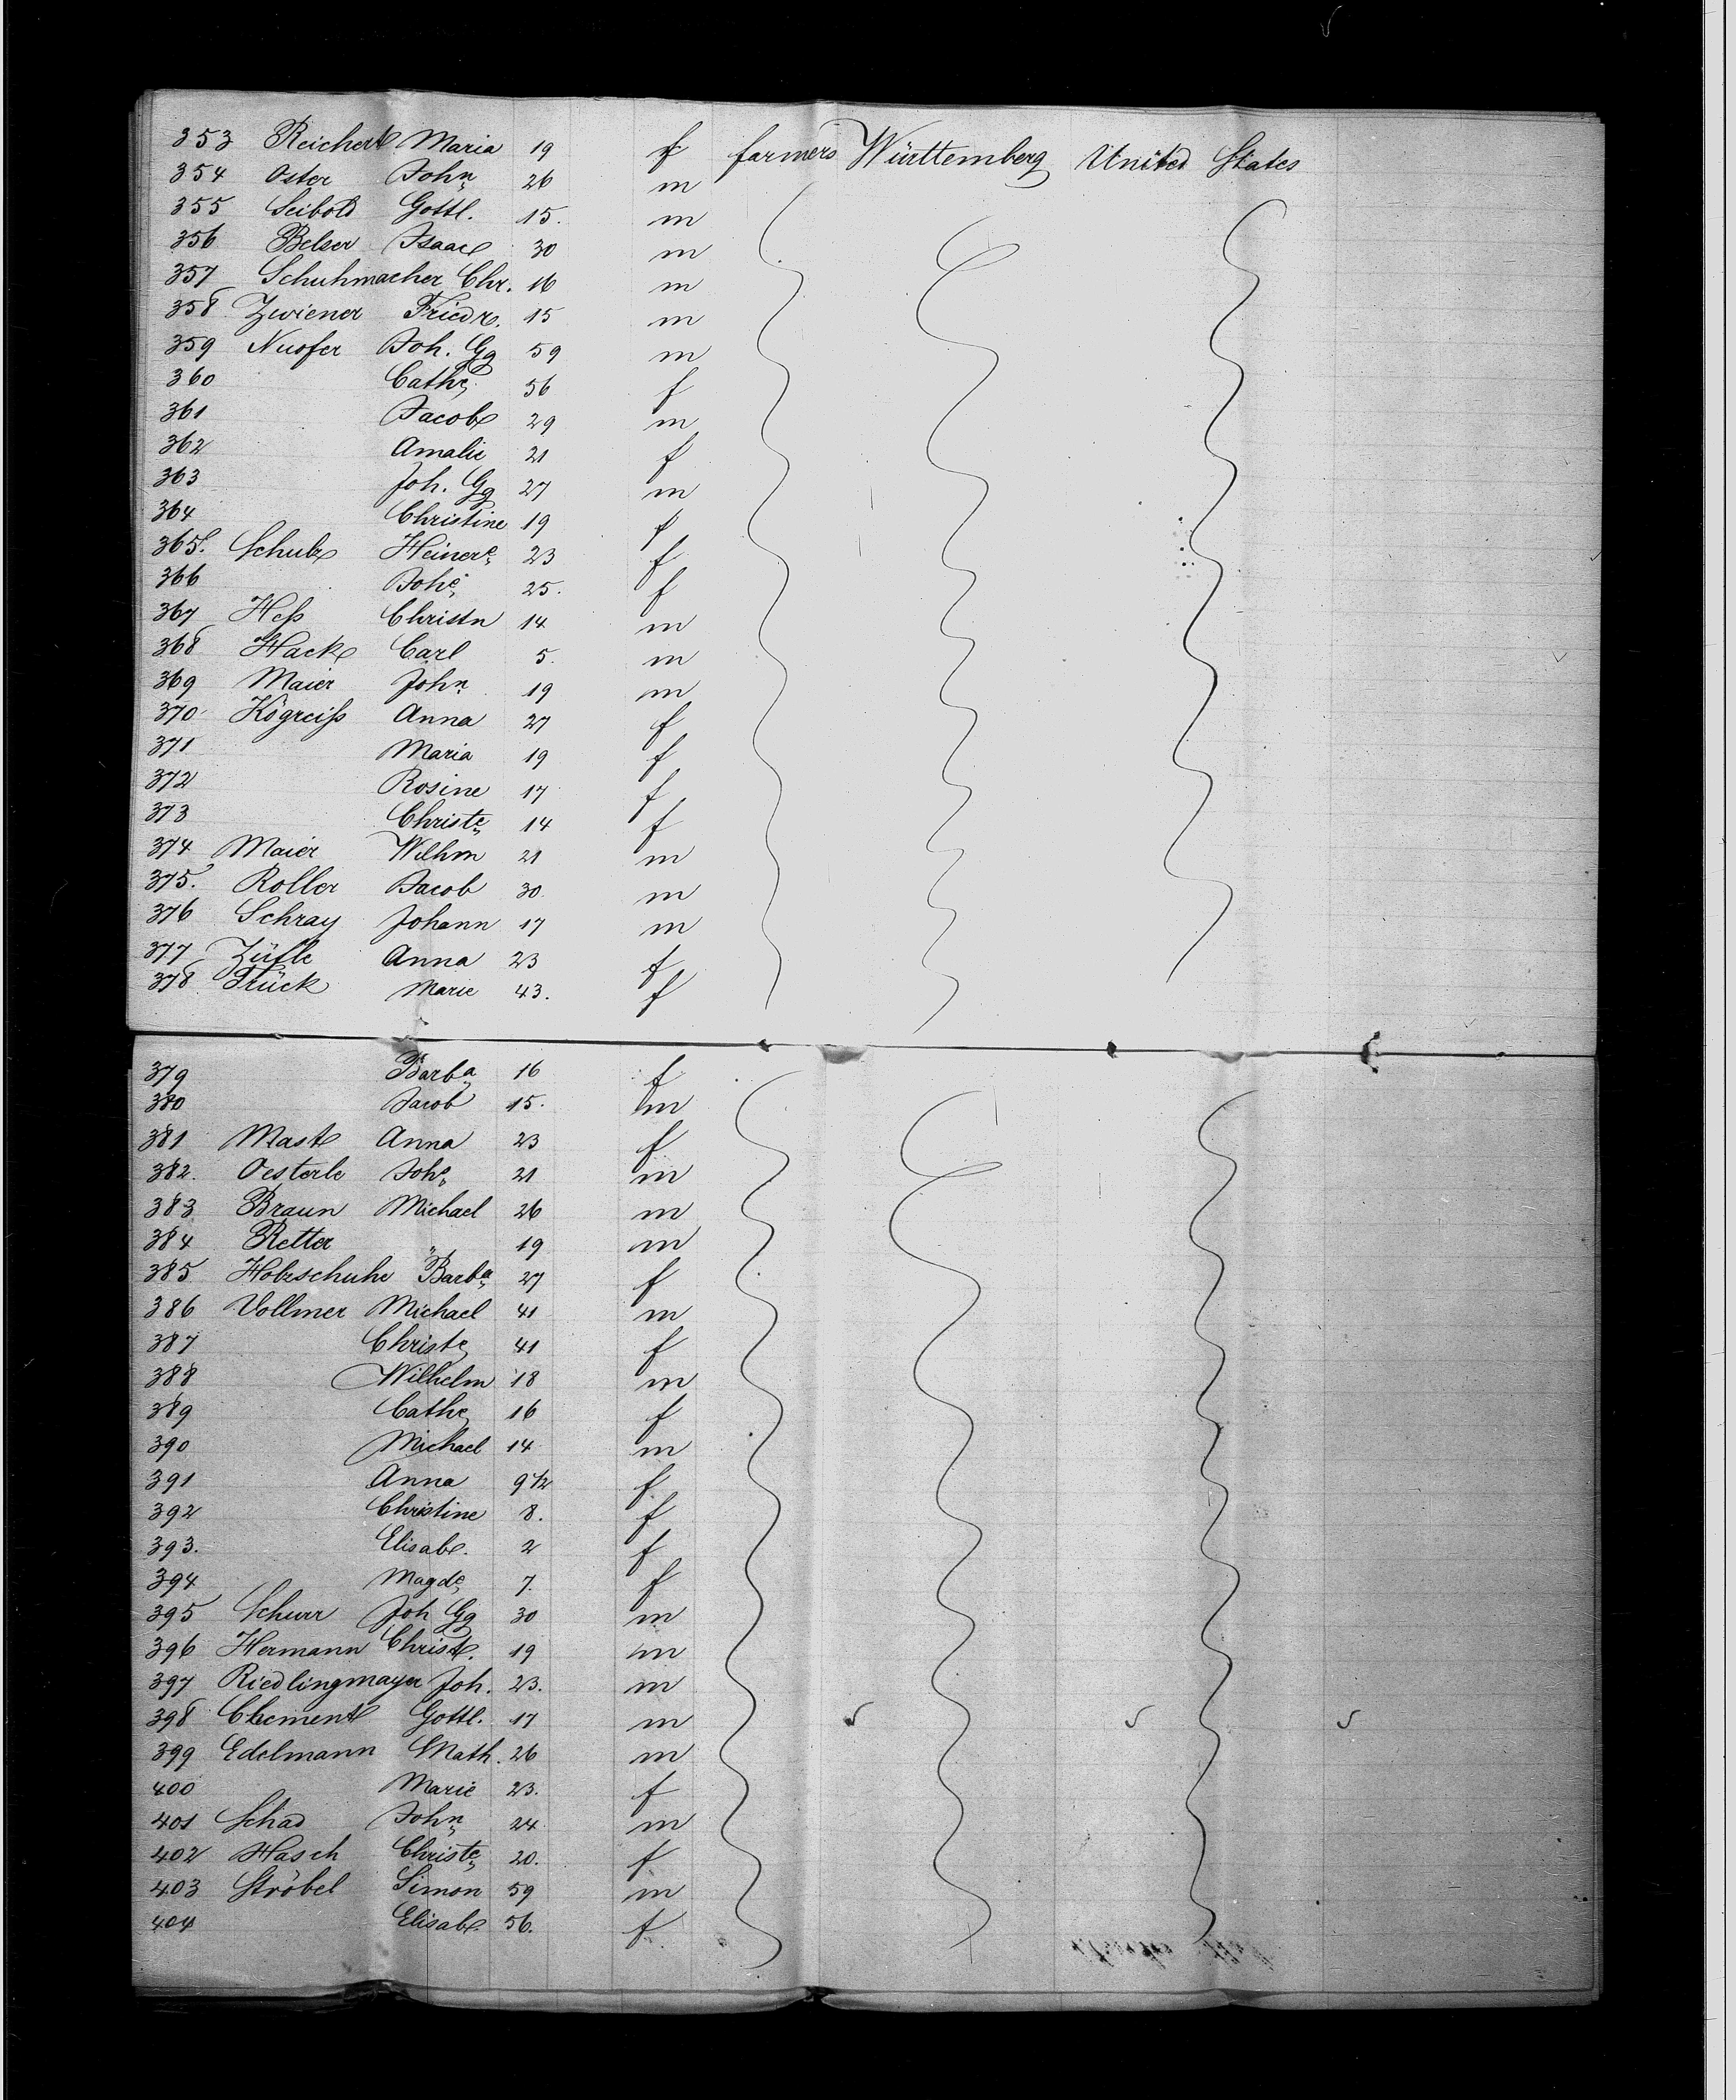 353 Reichert Maria 19 f farmers Württemberg United States
354 Oster John 26 m
355 Seibold Gottl. 15. m
356 Belser Isaac 30 m
357 Schuhmacher Chr. 16 m
358 Zwiener Friedr. 15 m
359 Nuofer Joh. Gg 59 m
360 Cathe 56 f
361 Jacob 29 m
362 Amalie 21 f
363 Joh. Gg 27 m
364 Christine 19 f
365. Schulz Heinere 23 f
366 Johe 25. f
367 Heß Christn 14 m
368 Hack Carl 5. m
369 Maier John 19 m
370 Kögreiß Anna 27 f
371 Maria 19 f
372 Rosine 17 f
373 Christe 14 f
374 Maier Wilhm 21 m
375. Roller Jacob 30 m
376 Schray Johann 17 m
377 Züfle Anna 23 f
378 Trück Marie 43. f
379 Barba 16 f
380 Jacob 15. m
381 Mast Anna 23 f
382. Oesterle Johs 21 m
383 Braun Michael 26 m
384 Retter " 19 m
385 Holzschuhe Barba 27 f
386 Vollmer Michael 41 m
387 Christe 41 f
388 Wilhelm 18 m
389 Cathe 16 f
390 Michael 14 m
391 Anna 9 1/2 f
392 Christine 8. f
393. Elisab. 2 f
394 Magde 7. f
395 Schurr Joh Gg 30 m
396 Hermann Christ. 19 m
397 Riedlingmayer Joh. 23. m
398 Clement Gottl. 17 m
399 Edelmann Math. 26 m
400 Marie 23. f
401 Schad John 24 m
402 Hasch Christe 20. f
403 Ströbel Simon 59 m
404 Elisab. 56. f